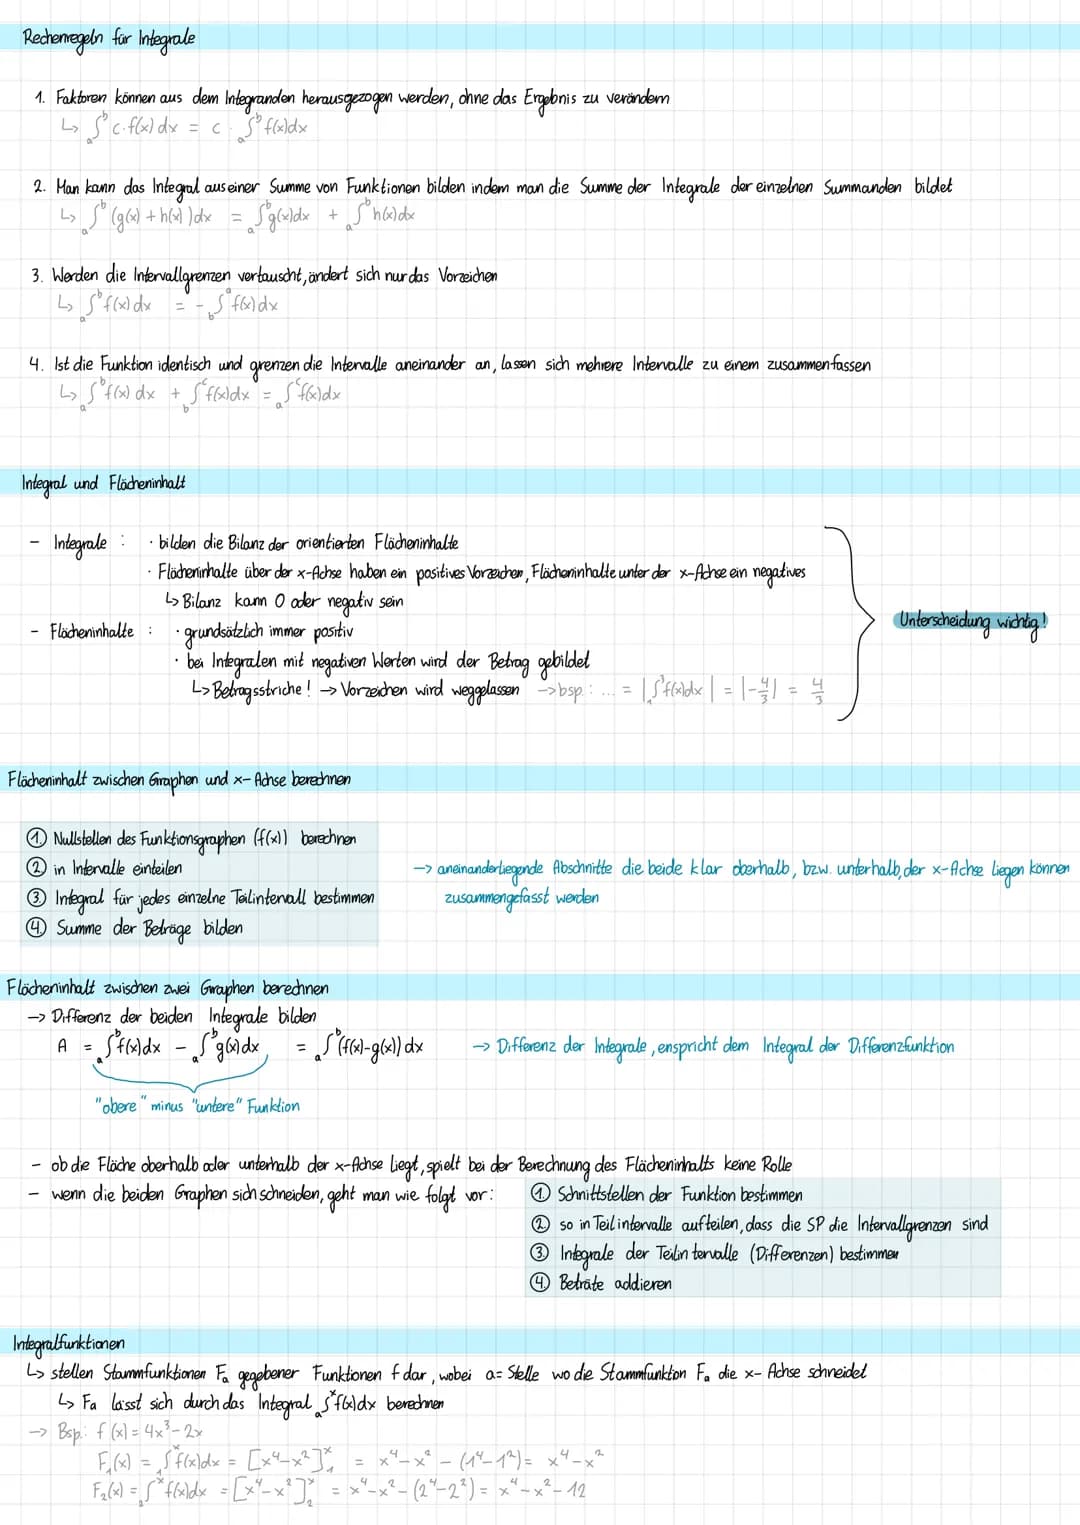 Rechenregeln für Integrale
1. Faktoren können aus dem Integranden herausgezogen werden, ohne das Ergebnis zu verändern
↳ ₐ∫ᵇ c·f(x) dx = c · ₐ∫ᵇ f(x)dx
2. Man kann das Integral aus einer Summe von Funktionen bilden indem man die Summe der Integrale der einzelnen Summanden bildet
↳ ₐ∫ᵇ (g(x) + h(x)) dx = ₐ∫ᵇ g(x)dx + ₐ∫ᵇ h(x)dx
3. Werden die Intervallgrenzen vertauscht, ändert sich nur das Vorzeichen
↳ ₐ∫ᵇ f(x) dx = - b∫ᵃ f(x) dx
4. Ist die Funktion identisch und grenzen die Intervalle aneinander an, lassen sich mehrere Intervalle zu einem zusammenfassen
↳ ₐ∫ᵇ f(x) dx + b∫ᶜ f(x)dx = ₐ∫ᶜ f(x)dx
Integral und Flächeninhalt
- Integrale : · bilden die Bilanz der orientierten Flächeninhalte
· Flächeninhalte über der x-Achse haben ein positives Vorzeichen, Flächeninhalte unter der x-Achse ein negatives
↳ Bilanz kann 0 oder negativ sein
Unterscheidung wichtig!
- Flächeninhalte : · grundsätzlich immer positiv
· bei Integralen mit negativen Werten wird der Betrag gebildet
↳ Betragsstriche! → Vorzeichen wird weggelassen → bsp.: ... = |₁∫³ f(x)dx| = |-4/3| = 4/3
Flächeninhalt zwischen Graphen und x-Achse berechnen
① Nullstellen des Funktionsgraphen (f(x)) berechnen
② in Intervalle einteilen
③ Integral für jedes einzelne Teilintervall bestimmen
④ Summe der Beträge bilden
→ aneinanderliegende Abschnitte die beide klar oberhalb, bzw. unterhalb, der x-Achse liegen können
zusammengefasst werden
Flächeninhalt zwischen zwei Graphen berechnen
→ Differenz der beiden Integrale bilden
A = ₐ∫ᵇ f(x)dx - ₐ∫ᵇ g(x)dx = ₐ∫ᵇ (f(x)-g(x)) dx → Differenz der Integrale, enspricht dem Integral der Differenzfunktion
"obere" minus "untere" Funktion
- ob die Fläche oberhalb oder unterhalb der x-Achse liegt, spielt bei der Berechnung des Flächeninhalts keine Rolle
- wenn die beiden Graphen sich schneiden, geht man wie folgt vor:
① Schnittstellen der Funktion bestimmen
② so in Teilintervalle aufteilen, dass die SP die Intervallgrenzen sind
③ Integrale der Teilintervalle (Differenzen) bestimmen
④ Beträte addieren
Integralfunktionen
↳ stellen Stammfunktionen Fₐ gegebener Funktionen f dar, wobei a = Stelle wo die Stammfunktion Fₐ die x-Achse schneidet
↳ Fa lässt sich durch das Integral ₐ∫ˣ f(x)dx berechnen
→ Bsp.: f(x) = 4x³ - 2x
F₁(x) = ₁∫ˣ f(x)dx = [x⁴-x²]ˣ₁ = x⁴-x² - (1⁴-1²) = x⁴-x²
F₂(x) = ₂∫ˣ f(x)dx = [x⁴-x²]ˣ₂ = x⁴-x² - (2⁴-2²) = x⁴-x²-12